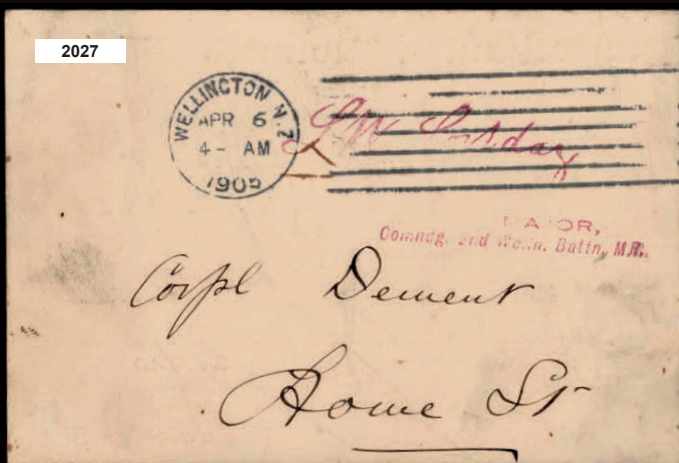 2027
WELLINGTON N.Z
APR 6
4 - AM
1905
MAJOR,
Comndg. 2nd Welln. Battn, M.R.
Corpl Dement
Howe St